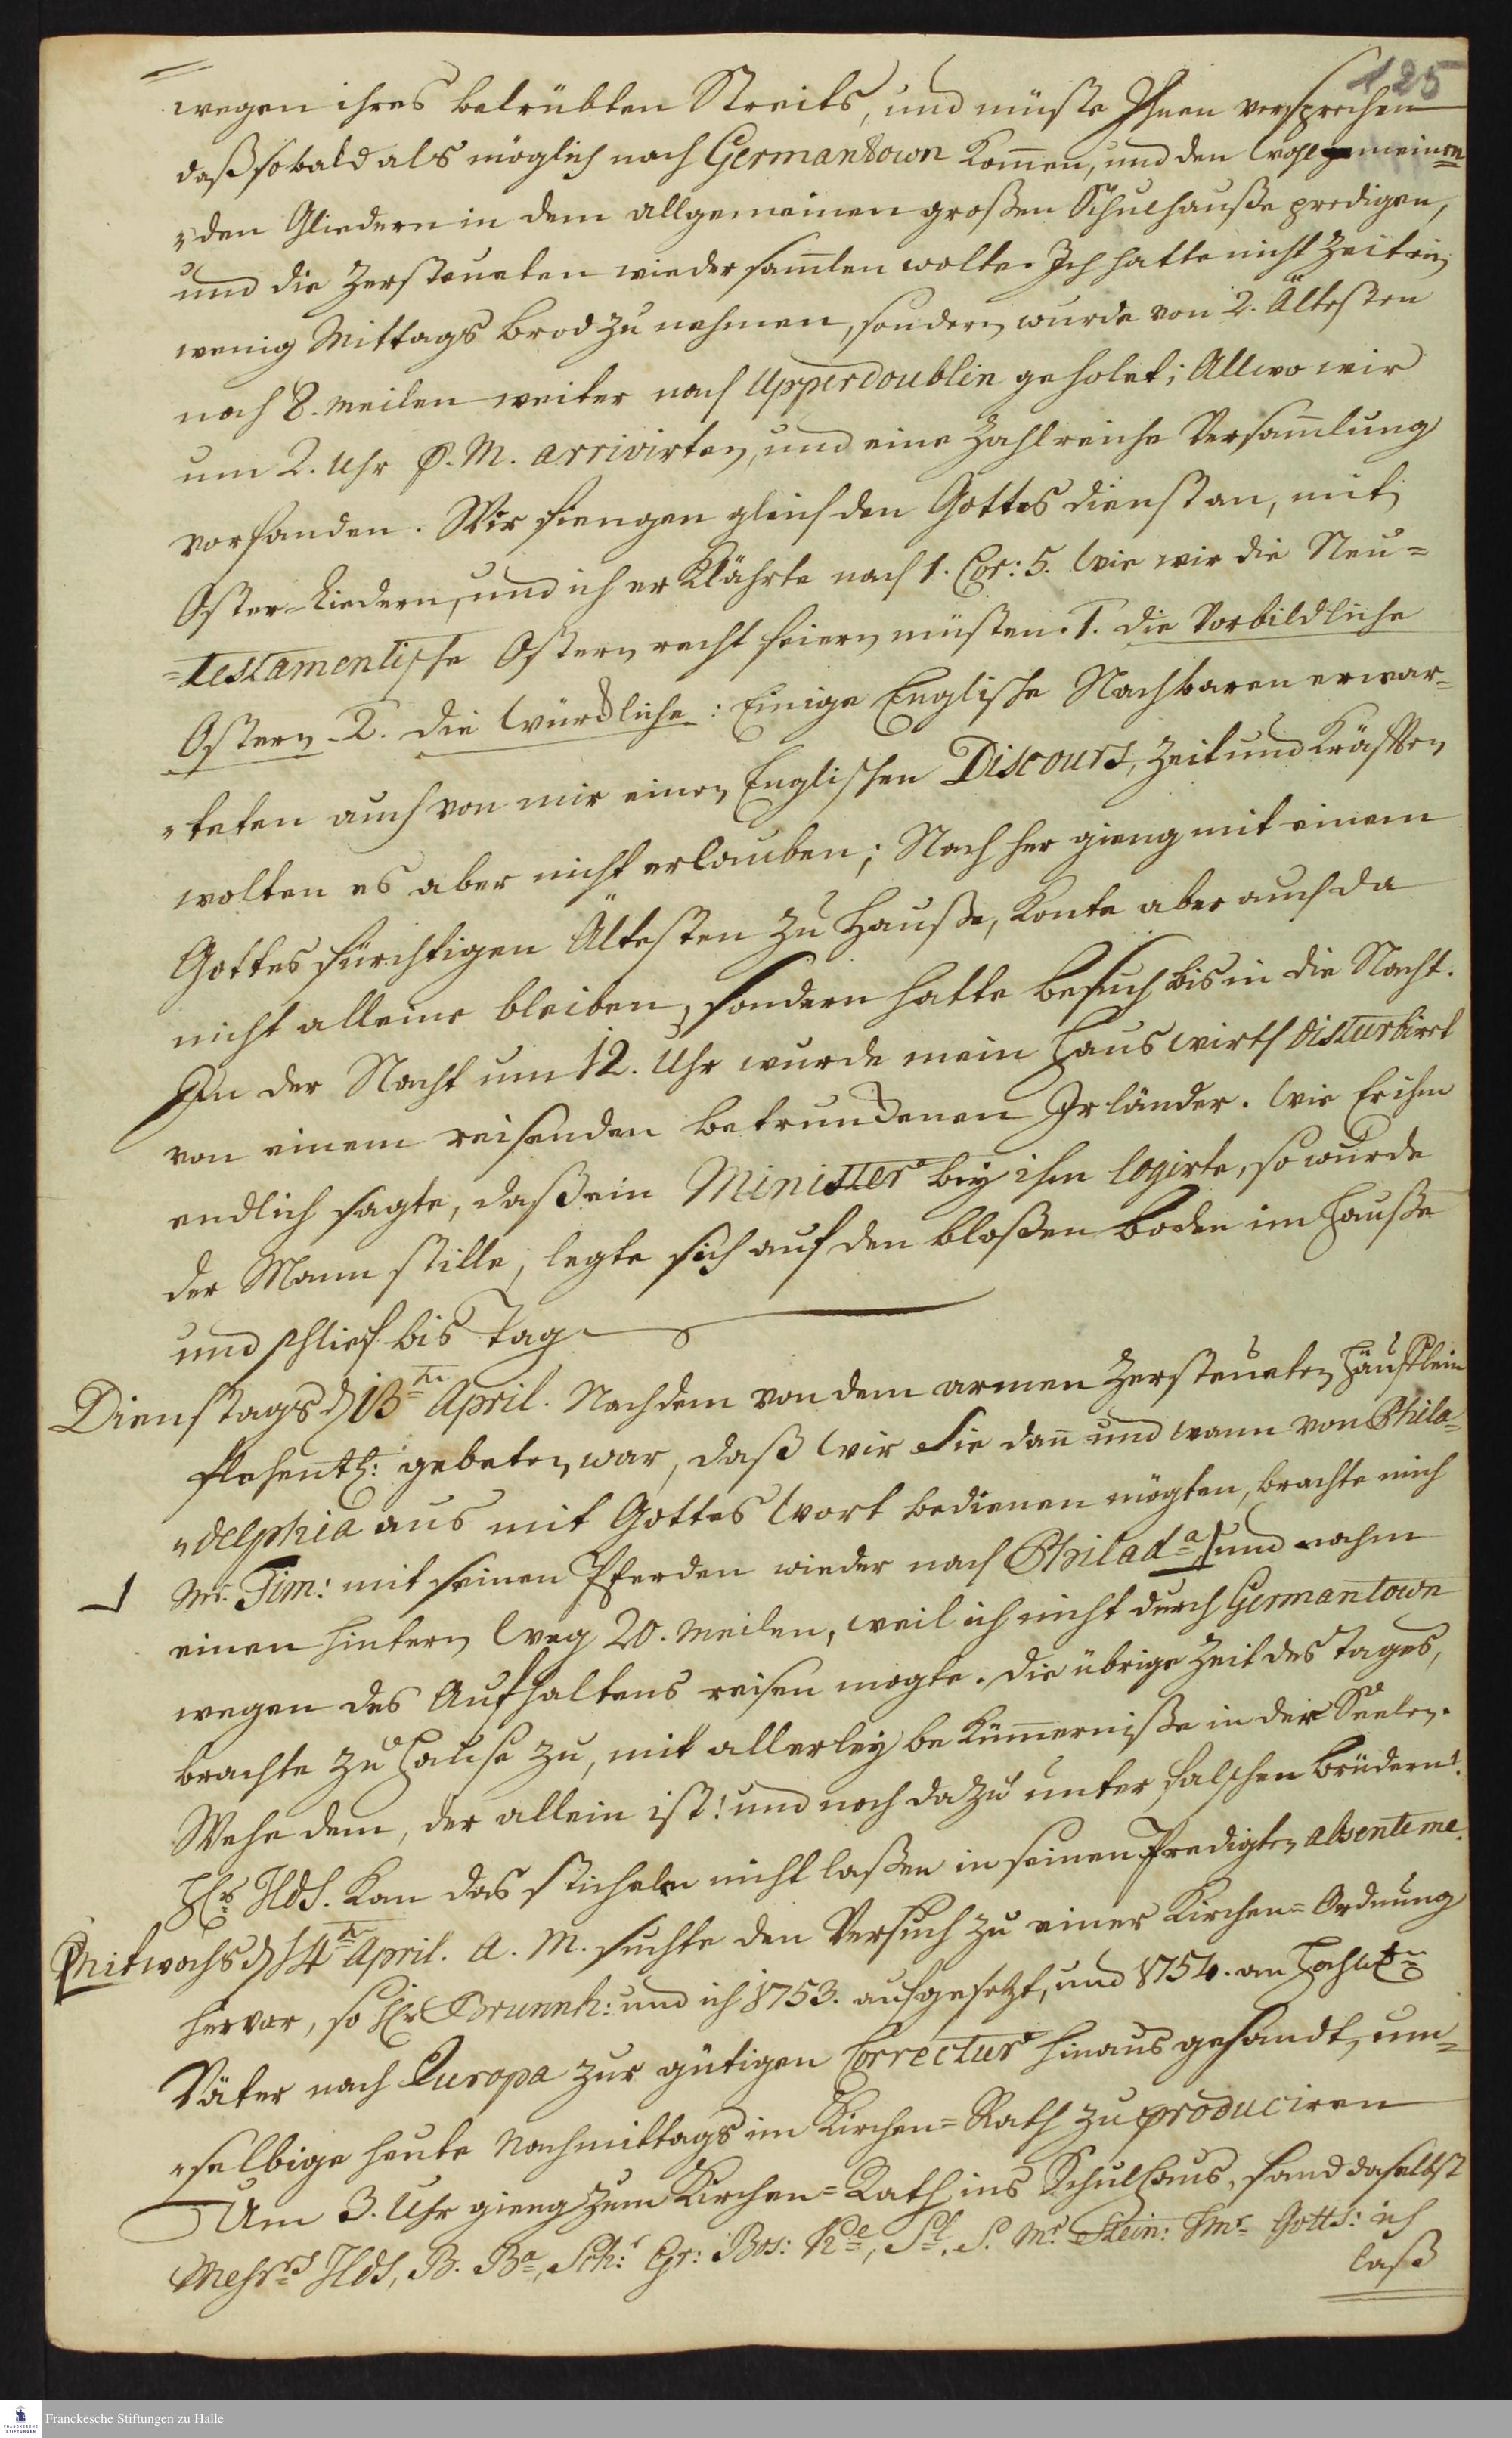 125
wegen ihres betrübten Streits, und müste Ihnen versprechen
daß sobald als möglich nach Germantown kom̄en, und den wohlmeinen
„den Gliedern in dem allgemeinen großen Schulhauße predigen,
und die Zerstreueten wieder sam̄len wolte. Ich hatte nicht Zeit ein
wenig Mittags Brod zu nehmen, sondern wurde von 2. Ältesten
noch 8. Meilen weiter nach Upperdoublin geholet; Allwo wir
um 2. Uhr P. M. arrivirten, und eine Zahlreiche Versam̄lung
vorfanden. Wir fiengen gleich den Gottesdienst an, mit
Oster-Liedern, und ich erklährte nach 1. Cor: 5. wie wir die Neu=
=testamentische Ostern recht feiern müsten. 1. die Vorbildliche
Ostern 2. die würckliche: Einige Englische Nachbaren erwar=
„teten auch von mir einen Englischen Discours, Zeit und Kräfften
wolten es aber nicht erlauben; Nach her gieng mit einem
Gottesfürchtigen Ältesten zu Hauße, konte aber auch da
nicht alleine bleiben, sondern hatte Besuch bis in die Nacht.
In der Nacht um 12. Uhr wurde mein Hauswirth disturbirt
von einem reisenden betrunckenen Irländer. Wie Er ihm
endlich sagte, daß ein Minister bey ihm logirte, so wurde
der Mann stille, legte sich auf den bloßen Boden im Hauße
und schlief bis Tag
Dienstags d 13ten April. Nachdem von dem armen Zerstreueten Häufflein
flehentl: gebeten war, daß wir Sie dan̄ und wann von Phila=
„delphia aus mit Gottes Wort bedienen mögten, brachte mich
Mr. Tim: mit seinen Pferden wieder nach Philad=a und nahm
einen hintern Weg 20. Meilen, weil ich nicht durch Germantown
wegen des Aufhaltens reisen mogte. Die übrige Zeit des Tages,
brachte zu Hause zu, mit allerley beküm̄erniße in der Seelen.
Wehe dem, der allein ist! und noch dazu unter falschen Brüdern!
HEr Hds. kan das sticheln nicht laßen in seinen Predigten absente me.
Mitwochs d 14ten April. A. M. suchte den Versuch zu einer Kirchen=Ordnung
hervor, so HEr Brunnh: und ich 1753. aufgesetzt, und 1754. an
Väter nach Europa zur gütigen Correctur hinaus gesandt, um=
„selbige heute Nachmittags im Kirchen=Rath zu produciren
Um 3. Uhr gieng zum Kirchen=Rath ins Schulhaus, fand daselbst
Messrs Hds, B. Ba, Sch:r Gr: Bos: S. Mr. Stein: Gotts: ich
laß
Franckesche Stiftungen zu Halle